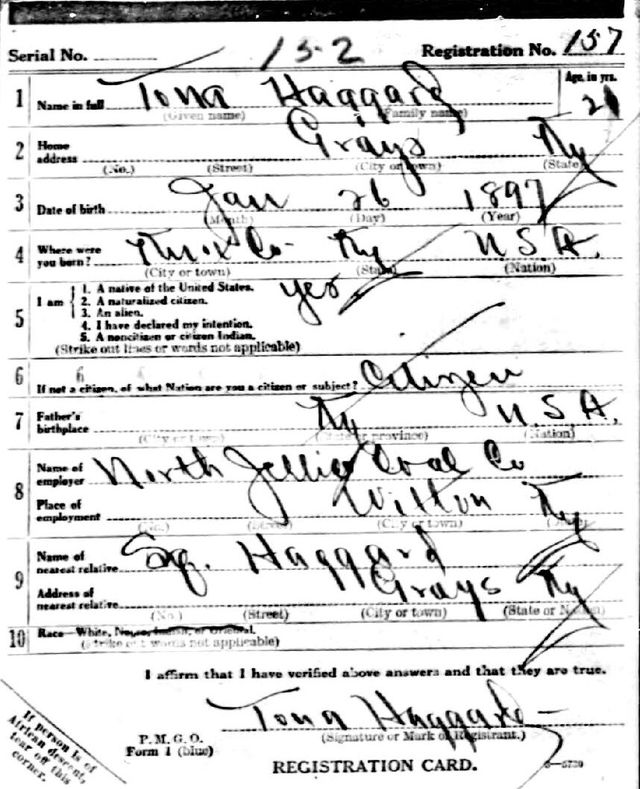 Serial No. 152 Registration No. 157
1 Name in full Tona Haggard Age, in yrs. 21
(Given name) (Family name)
2 Home address Grays Ky
(No.) (Street) (City or town) (State)
3 Date of birth Jan 26 1897
(Month) (Day) (Year)
4 Where were you born? Knox Co- Ky U.S.A.
(City or town) (State) (Nation)
5 I am
1. A native of the United States. yes
2. A naturalized citizen.
3. An alien.
4. I have declared my intention.
5. A noncitizen or citizen Indian.
(Strike out lines or words not applicable)
6 If not a citizen, of what Nation are you a citizen or subject? Citizen
7 Father's birthplace Ky U.S.A.
(City or town) (State or province) (Nation)
8 Name of employer North Jellico Coal Co
Place of employment Wilton Ky
(No.) (Street) (City or town) (State)
9 Name of nearest relative Sq. Haggard
Address of nearest relative Grays Ky
(No.) (Street) (City or town) (State or Nation)
10 Race—White, Negro, Indian, or Oriental.
(Strike out words not applicable)
I affirm that I have verified above answers and that they are true.
Tona Haggard
(Signature or Mark of Registrant.)
P. M. G. O.
Form 1 (blue)
REGISTRATION CARD.
If person is of
African descent,
tear off this
corner.